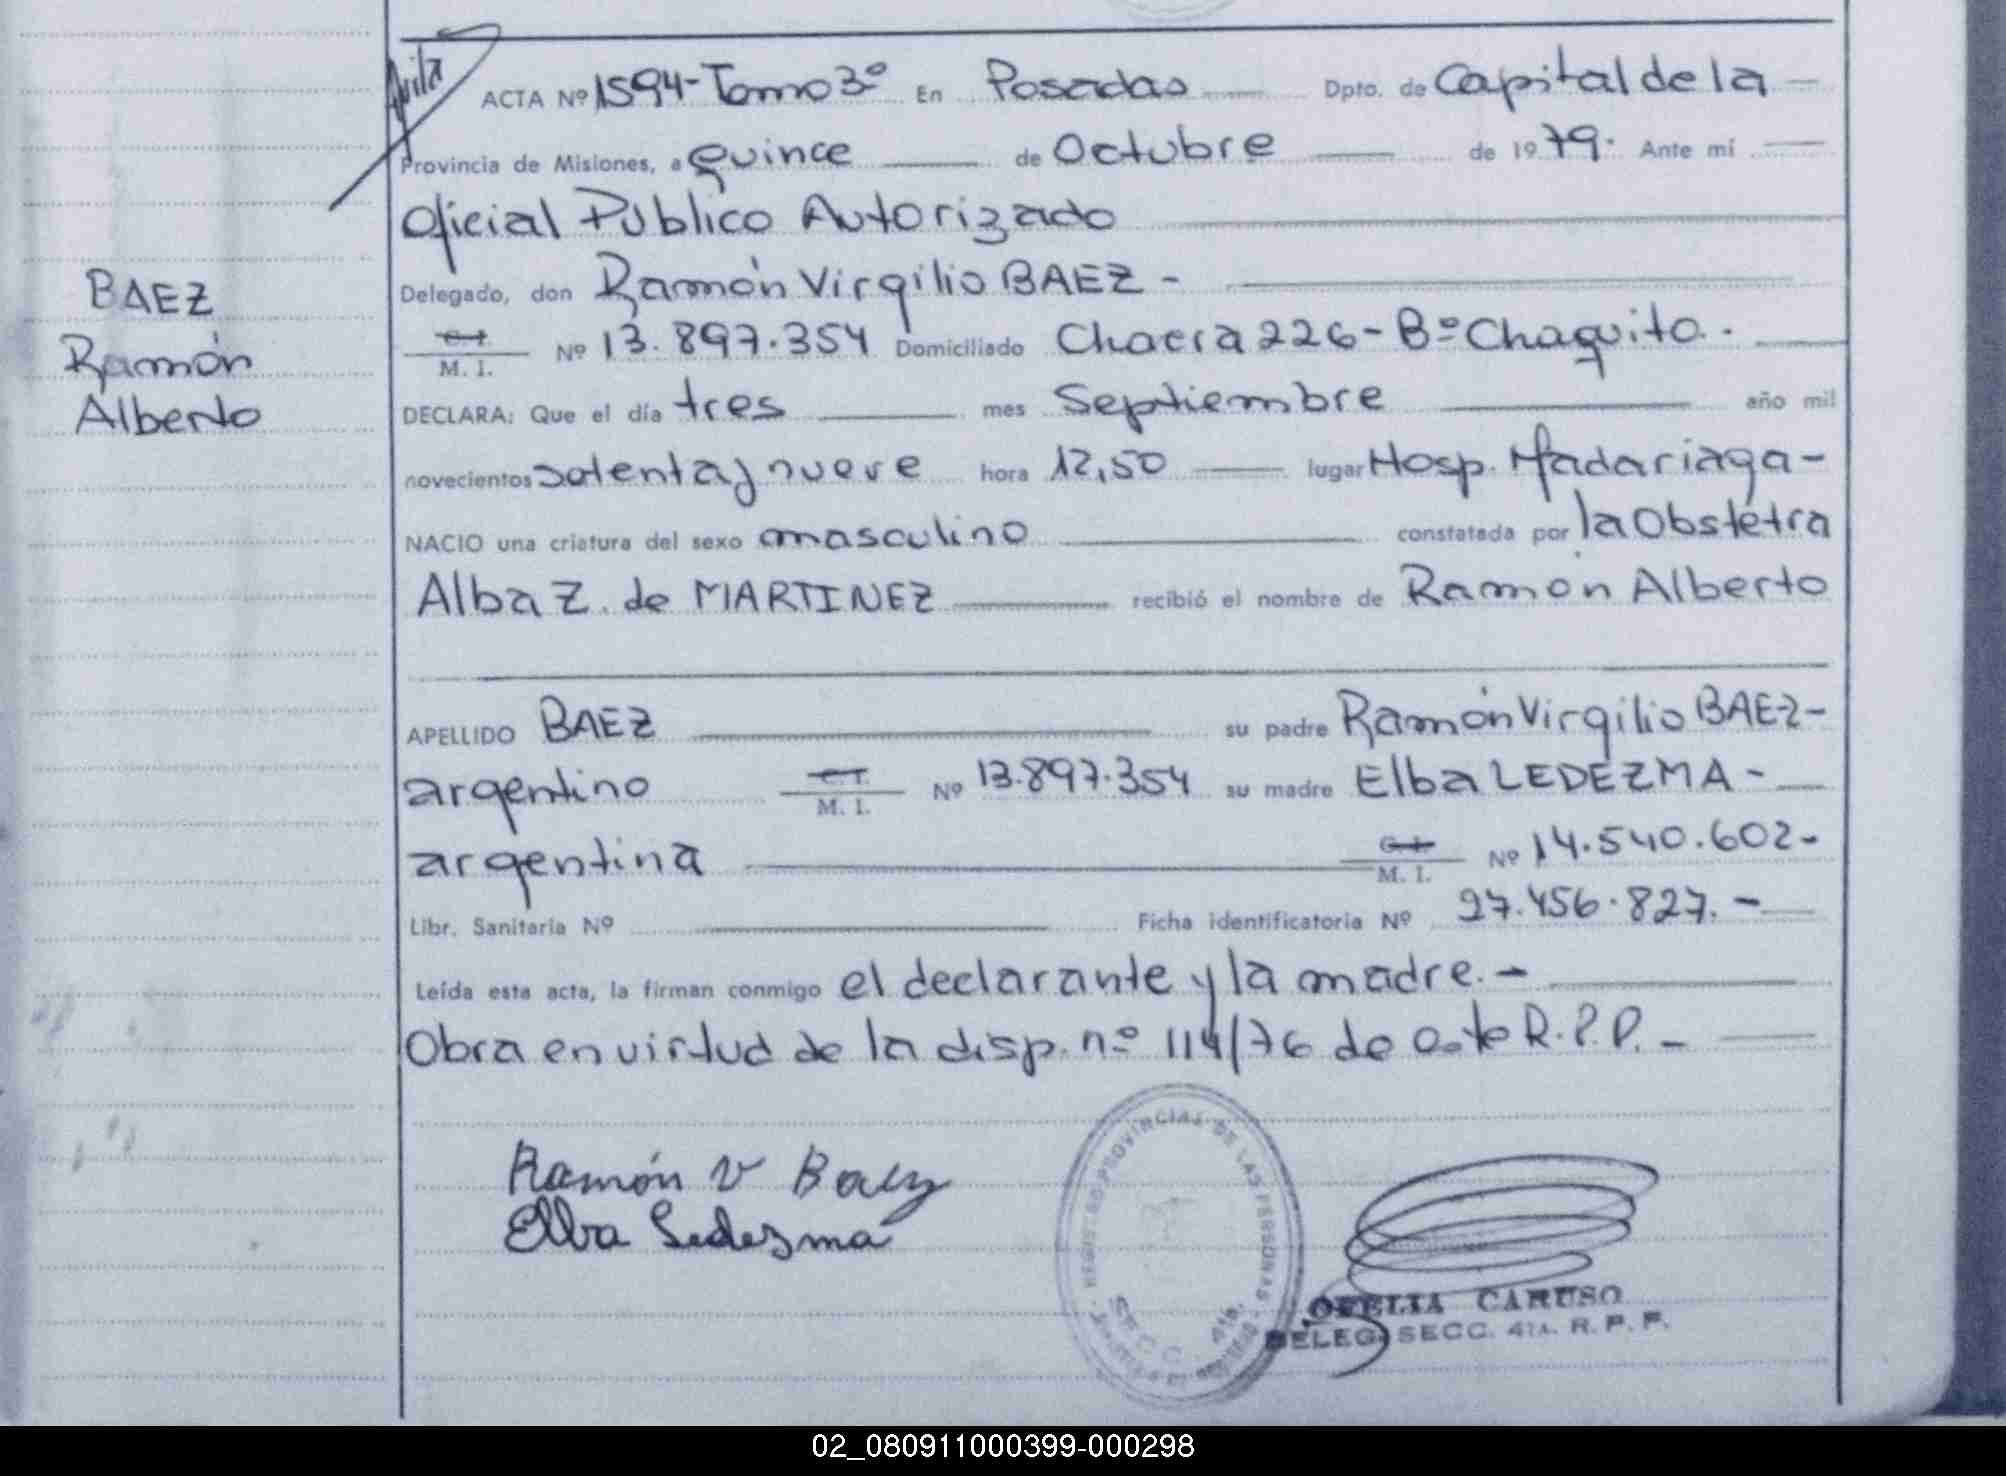 ACTA Nº 1594-Tomo 3º En Posadas Dpto. de Capital de la
Provincia de Misiones, a quince de Octubre de 1979. Ante mí
Oficial Público Autorizado
Delegado, don Ramón Virgilio BAEZ -
BAEZ
C.I. M. I. Nº 13.897.354 Domiciliado Chacra 226 - Bº Chaquito.
Ramón
DECLARA: Que el día tres mes Septiembre año mil
Alberto
novecientos setenta y nueve hora 12,50 lugar Hosp. Madariaga -
NACIO una criatura del sexo masculino constatada por la Obstétra
Alba Z. de MARTINEZ recibió el nombre de Ramón Alberto
APELLIDO BAEZ su padre Ramón Virgilio BAEZ -
argentino C.I. M. I. Nº 13.897.354 su madre Elba LEDEZMA -
argentina C.I. M. I. Nº 14.540.602-
Libr. Sanitaria Nº Ficha identificatoria Nº 27.456.827. -
Leída esta acta, la firman conmigo el declarante y la madre. -
Obra en virtud de la disp. nº 114/76 de este R.P.P. -
Ramón V Baez
Elba Ledezma
REGISTRO PROVINCIAL DE LAS PERSONAS
SECC. 4ta.
OFELIA CARUSO
DELEG. SECC. 4TA. R. P. P.
02_080911000399-000298